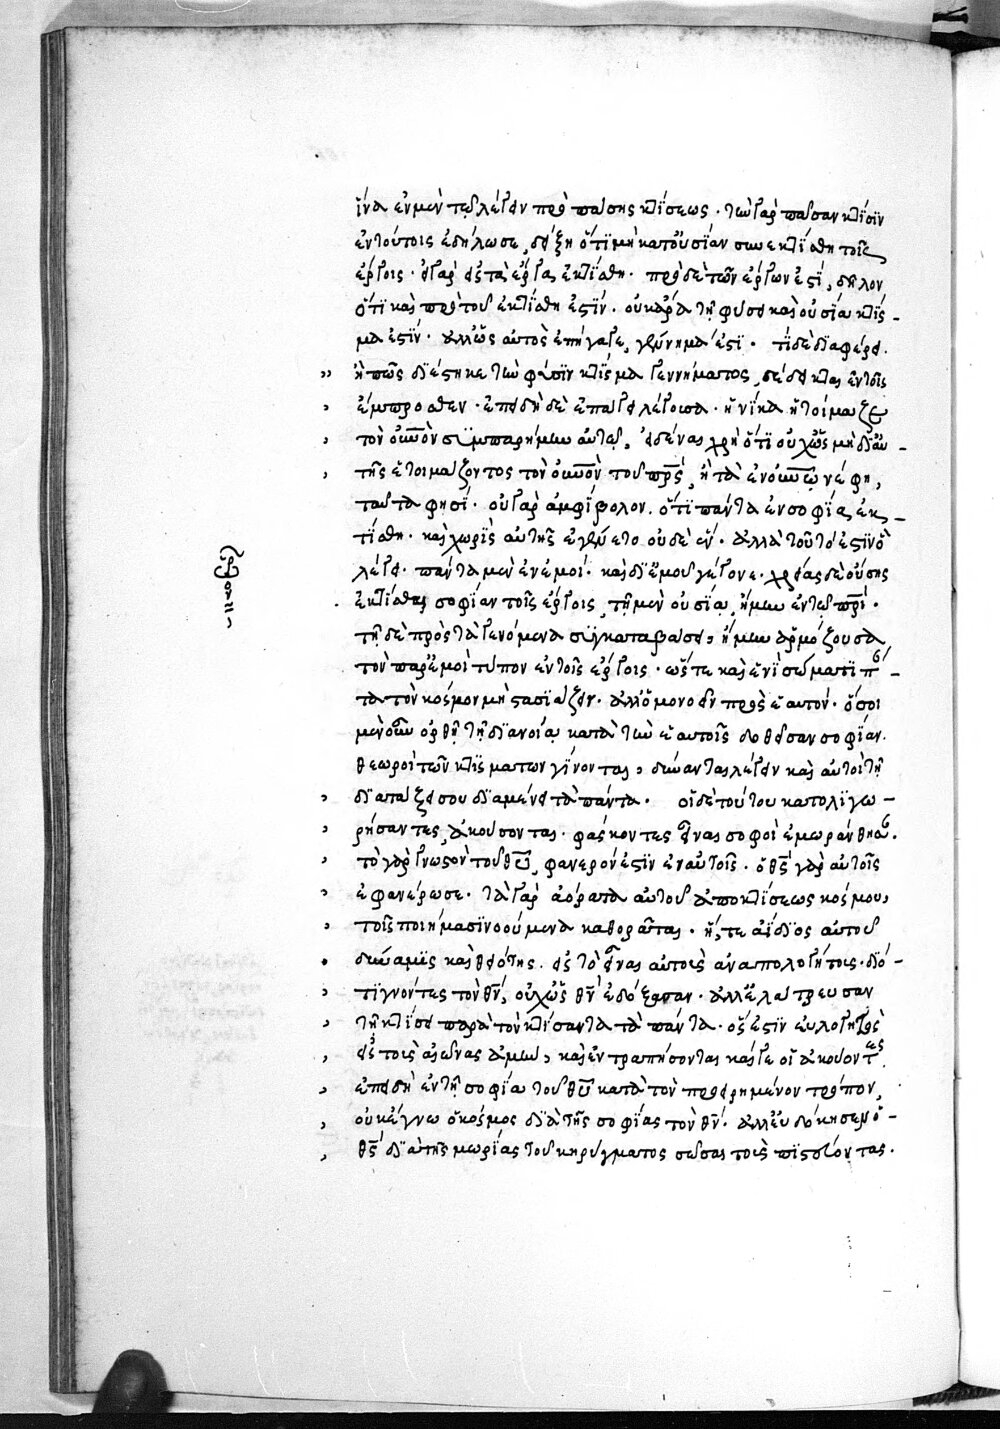 ἵνα ἐν μὲν τῶ λέγειν πρὸ πάσης κτίσεως · τὴν γὰρ πᾶσαν κτίσιν
ἐν τούτοις ἐδήλωσε, δείξη ὅτι μὴ κατ' οὐσίαν συνεκτίσθη τοῖς
ἔργοις · εἰ γὰρ εἰς τὰ ἔργα ἐκτίσθη · πρὸ δὲ τῶν ἔργων ἐστὶ, δῆλον
ὅτι καὶ πρὸ τοῦ ἐκτίσθη ἐστίν · οὐκ ἄρα τῆ φύσει καὶ οὐσία κτίσ-
μα ἐστίν · ἀλλ' ὡς αὐτὸς ἐπήγαγε, γέννημά ἐστι · τί δὲ διαφέρει
ἢ πῶς διέστηκε τὴν φύσιν κτίσμα γεννήματος, δέδεικται ἐν τοῖς
ἔμπροσθεν · ἐπειδὴ δὲ ἐπάγει λέγουσα · ἡνίκα ἡτοίμαζε
τὸν οὐνὸν συμπαρήμην αὐτῶ, εἰδέναι χρὴ ὅτι οὐχ ὡς μὴ δι' αὐ-
τῆς ἑτοιμάζοντος τὸν οὐνὸν τοῦ πρς, ἢ τὰ ἐν οὐνῶ νέφη,
ταῦτα φησί · οὐ γὰρ ἀμφίβολον · ὅτι πάντα ἐν σοφία ἐκ-
τίσθη · καὶ χωρὶς αὐτῆς ἐγένετο οὐδὲ ἕν · ἀλλὰ τοῦτό ἐστιν ὃ
λέγει · πάντα μὲν ἐν ἐμοὶ · καὶ δι' ἐμοῦ γέγονε · χρείας δὲ οὔσης
ἐκτίσθαι σοφίαν τοῖς ἔργοις, τῆ μὲν οὐσία, ἤμην ἐν τῶ πρι ·
τῆ δὲ πρὸς τὰ γενόμενα συγκαταβάσει, ἤμην ἁρμόζουσα
τὸν παρ' ἐμοὶ τύπον ἐν τοῖς ἔργοις · ὥστε καὶ ἐν ἑνὶ σώματι πάν-
τα τὸν κόσμον μὴ στασιάζειν · ἀλλ' ὁμονοεῖν πρὸς ἑαυτόν · ὅσοι
μὲν οὖν ὀρθῆ τῆ διανοία κατὰ τὴν ἑαυτοῖς δοθεῖσαν σοφίαν
θεωροὶ τῶν κτισμάτων γίνονται, δύνανται λέγειν καὶ αὐτοὶ τῆ
διατάξει σου διαμένει τὰ πάντα · οἱ δὲ τούτου κατολιγω-
ρήσαντες, ἀκούσονται · φάσκοντες εἶναι σοφοὶ ἐμωράνθησαν ·
τὸ γὰρ γνωστὸν τοῦ θυ, φανερόν ἐστιν ἐν αὐτοῖς · ὁ θς γὰρ αὐτοῖς
ἐφανέρωσε · τὰ γὰρ ἀόρατα αὐτοῦ ἀπὸ κτίσεως κόσμου,
τοῖς ποιήμασι νοούμενα καθορᾶται · ἥ,τε ἀΐδιος αὐτοῦ
δύναμις καὶ θειότης · εἰς τὸ εἶναι αὐτοὺς ἀναπολογήτους · διό-
τι γνόντες τὸν θν, οὐχ ὡς θν ἐδόξασαν · ἀλλ' ἐλάτρευσαν
τῆ κτίσει παρὰ τὸν κτίσαντα τὰ πάντα · ὅς ἐστιν εὐλογητὸς
εἰς τοὺς αἰῶνας ἀμήν, καὶ ἐντραπήσονται καί γε οἱ ἀκούοντες
ἐπειδὴ ἐν τῆ σοφία τοῦ θυ κατὰ τὸν προειρημένον τρόπον,
οὐκ ἔγνω ὁ κόσμος διὰ τῆς σοφίας τὸν θν · ἀλλ' εὐδόκησεν ὁ
θς διὰ τῆς μωρίας τοῦ κηρύγματος σῶσαι τοὺς πιστεύοντας ·